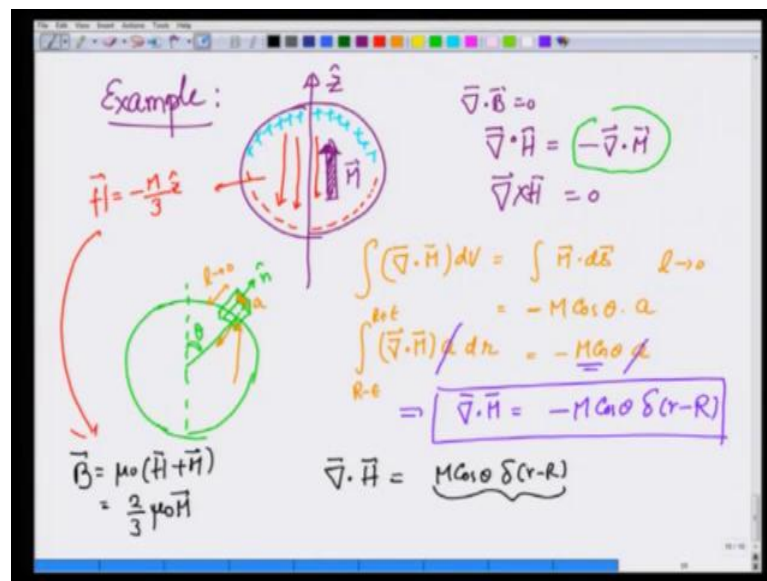 File Edit View Insert Actions Tools Help
Example:
ẑ
M⃗
H⃗ = -Mẑ/3
∇⃗·B⃗ = 0
∇⃗·H⃗ = -∇⃗·M⃗
∇⃗×H⃗ = 0
l→0
n̂
a
θ
∫(∇⃗·M⃗)dV = ∫M⃗·ds⃗ l→0
= -M Cosθ·a
∫_{R-ε}^{R+ε}(∇⃗·M⃗) a dr = -M Cosθ a
⇒ ∇⃗·M⃗ = -M Cosθ δ(r-R)
B⃗ = μ₀(H⃗+M⃗)
= 2/3 μ₀M⃗
∇⃗·H⃗ = M Cosθ δ(r-R)